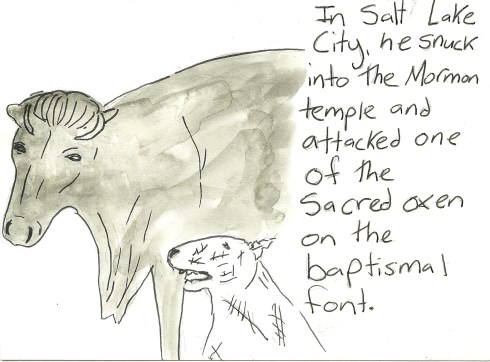 In Salt Lake
City, he snuck
into the Mormon
temple and
attacked one
of the
Sacred oxen
on the
baptismal
font.